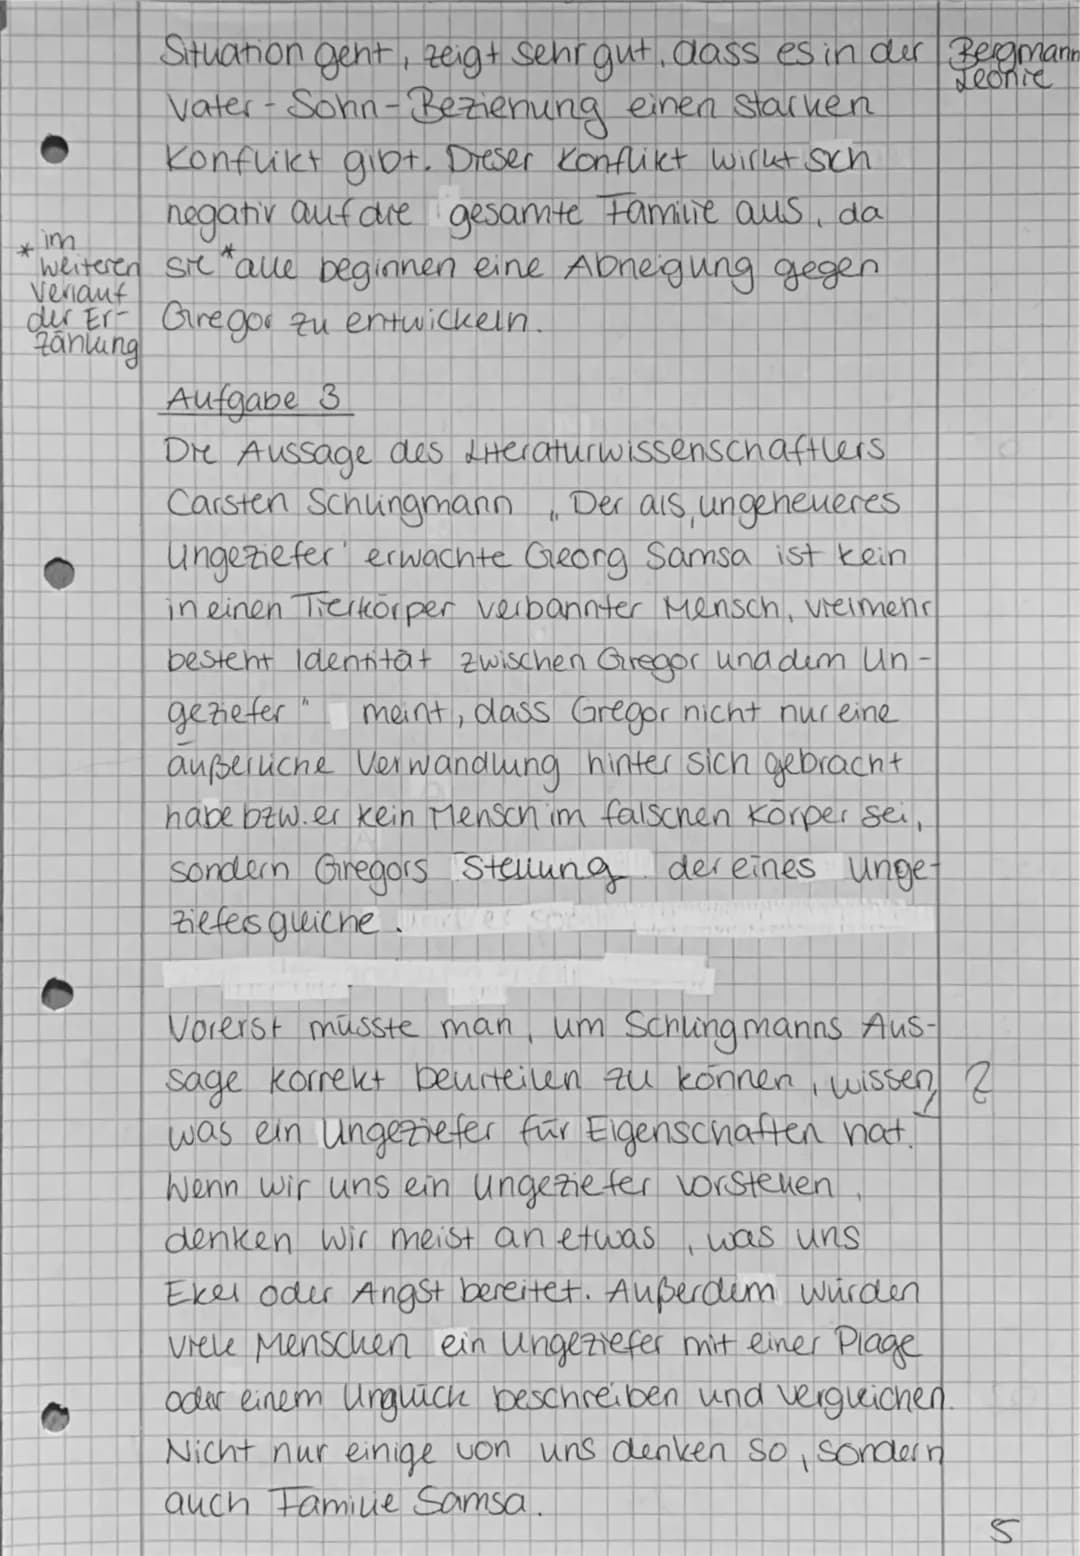 Situation geht, zeigt sehr gut, dass es in der
Bergmann
Leonie
Vater-Sohn-Beziehung einen starken
Konflikt gibt. Dieser Konflikt wirkt sich
negativ auf die gesamte Familie aus, da
sie *alle beginnen eine Abneigung gegen
Gregor zu entwickeln.
* im
weiteren
Verlauf
der Er-
zählung
Aufgabe 3
Die Aussage des Literaturwissenschaftlers
Carsten Schlingmann „Der als ‚ungeheueres
Ungeziefer' erwachte Georg Samsa ist kein
in einen Tierkörper verbannter Mensch, vielmehr
besteht Identität zwischen Gregor und dem Un-
geziefer" meint, dass Gregor nicht nur eine
äußerliche Verwandlung hinter sich gebracht
habe bzw. er kein Mensch im falschen Körper sei,
sondern Gregors Stellung der eines Unge-
ziefers gleiche.
Vorerst müsste man, um Schlingmanns Aus-
sage korrekt beurteilen zu können, wissen,
was ein Ungeziefer für Eigenschaften hat.
Wenn wir uns ein Ungeziefer vorstellen,
denken wir meist an etwas, was uns
Ekel oder Angst bereitet. Außerdem würden
viele Menschen ein Ungeziefer mit einer Plage
oder einem Unglück beschreiben und vergleichen.
Nicht nur einige von uns denken so, sondern
auch Familie Samsa.
5